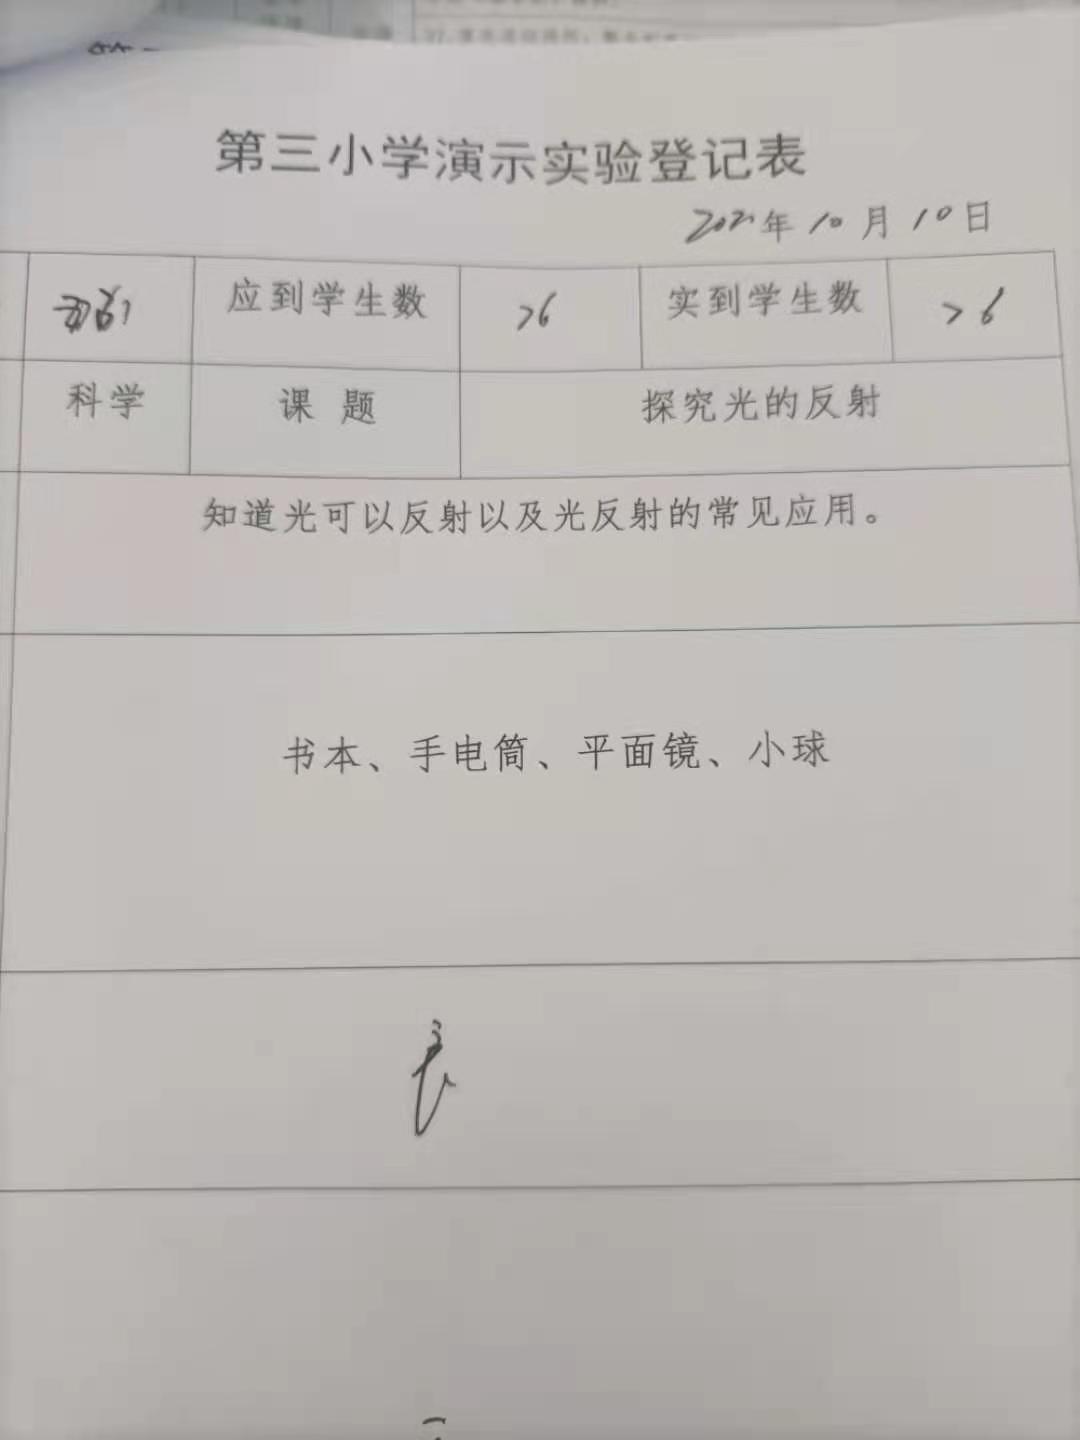 第三小学演示实验登记表
2021年10月10日
应到学生数 76 实到学生数 76
科学 课题 探究光的反射
知道光可以反射以及光反射的常见应用。
书本、手电筒、平面镜、小球